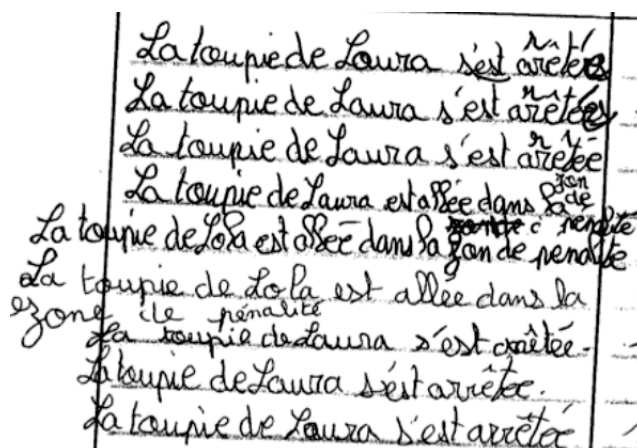 La toupie de Laura s'est arêtée
La toupie de Laura s'est arêtée
La toupie de Laura s'est arêtée
La toupie de Laura est allée dans la zon de
penalite
La toupie de Lola est allée dans la zon de penalite
La toupie de Lola est allée dans la
zone de pénalité
La toupie de Laura s'est arrêtée.
La toupie de Laura s'est arrêtée.
La toupie de Laura s'est arrêtée